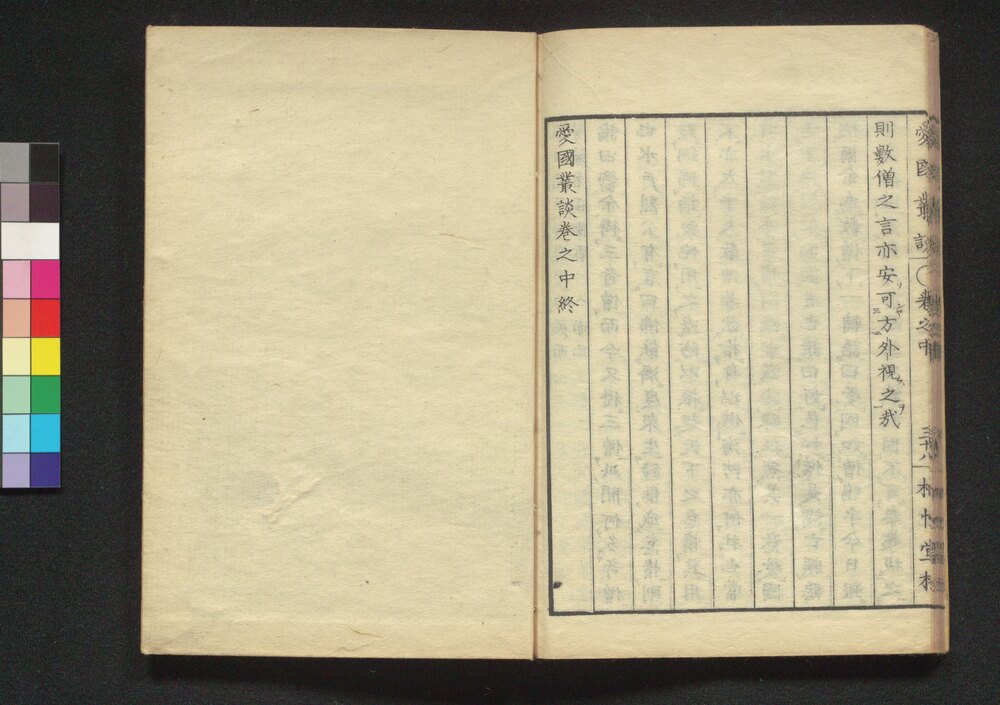 愛國叢談 卷之中 三十八
則數僧之言亦安可方外視之哉
愛國叢談卷之中終